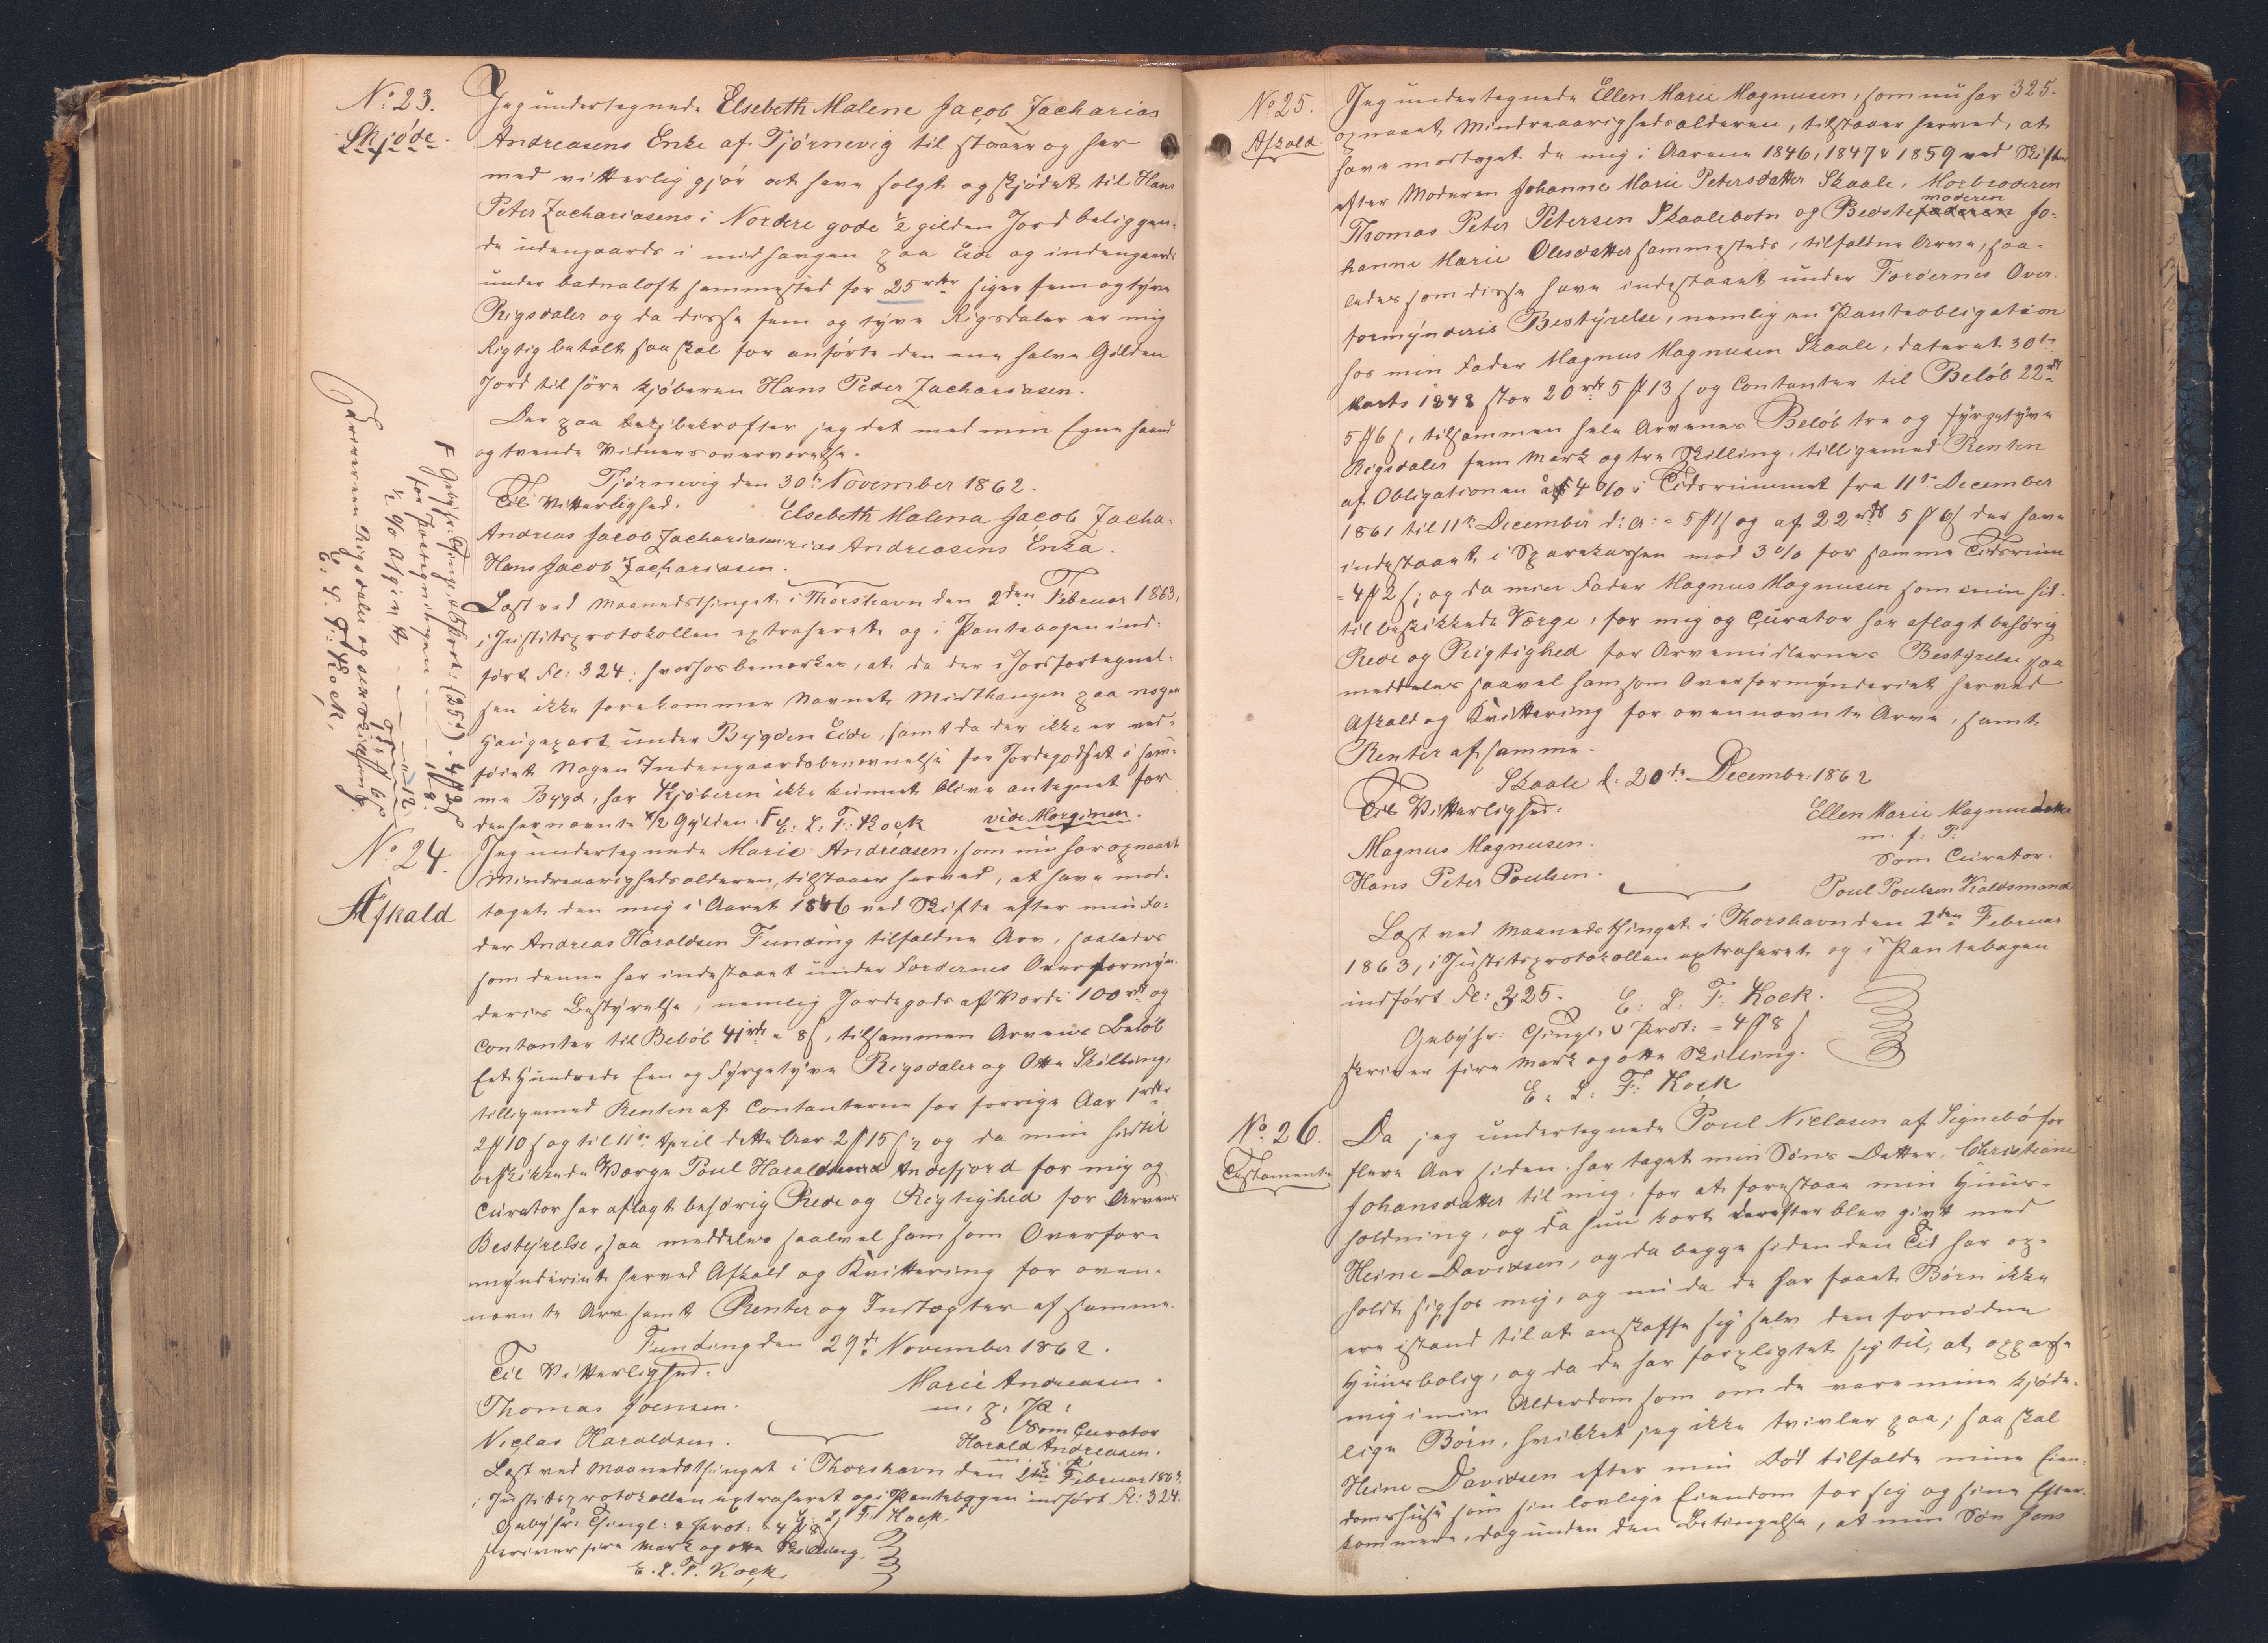 No: 23.
Skjøde.
Jeg undertegnede Elsebeth Malene Jacob Zacharias
Andreasens Enke af Tjørnevig til staaer og her
med vitterlig gjør at have solgt og skjødet til Hans
Peter Zachariasens i Nordre gode ½ gilden Jord beliggen-
de udengaards i midhaugen paa Eide og indengaards
under badnaloft sammested for 25 rdr siger fem og tyve
Rigsdaler og da disse fem og tyve Rigsdaler er mig
Rigtig betalt saa skal for anførte den ene halve Gilden
Jord til høre kjøberen Hans Peder Zachariasen.
Der paa bekræfter jeg det med min Egne haand
og tvende Vidners overværelse.
Tjørnevig den 30te November 1862.
Til Vitterlighed.
Elsebeth Malena Jacob Zacha-
Andreas Jacob Zachariasen rias Andreasens Enka.
Hans Jacob Zachariasen.
Læst ved Maanedsthinget i Thorshavn den 2den Februar 1863,
i Justitsprotokollen extraheret og i Pantebogen ind-
ført Fl: 324; hvorhos bemærkes, at da der i Jordfortegnel-
sen ikke forekommer Navnet Midthaugen paa nogen
Haugepart under Bygden Eide, samt da der ikke er ved-
føiet Nogen Indengaardsbenævnelse for Jordegodset i sam-
me Bygd, har Kjøberen ikke kunnet blive antegnet for
den her nævnte ½ Gylden. F E: L: F: Kock vide Margimen.
F Gebyhr: Thingl. & Prot: (25 rd) - 4 ₰ 2 ß
for Paategningen - - 1 - 8 -
½ % Afgift - - - " - 12 -
9 rd ₰ 6 ß
Skriveren Rigsdaler og sex Skilling.
E. L. F: Kock,
No 24.
Afkald
Jeg undertegnede Marie Andreasen, som nu har opnaaet
Mindreaarighedsalderen, tilstaaer herved, at have mod-
taget den mig i Aaret 1846 ved Skifte efter min Fa-
der Andreas Haraldsen Funding tilfaldne Arv, saaledes
som denne har indestaaet under Færøernes Overformyn-
deries Bestyrelse, nemlig Jordegods af Værdi 100 rd og
Contanter til Beløb 41 rd " 8 ß, tilsammen Arvens Beløb
Eet Hundrede Een og Fyrgetyve Rigsdaler og Otte Skilling,
tilligemed Renten af Contanterne for forrige Aar 1 rdr
2 ₰ 10 ß og til 11te April dette Aar 2 ₰ 15 ß, og da min hidtil
beskikkede Værge Poul Haraldsen Andefjord for mig og
Curator har aflagt behørig Rede og Rigtighed for Arvens
Bestyrelse, saa meddeles saavel ham som Overfor-
mynderiet herved Afkald og Kvittering for oven-
nævnte Arv samt Renter og Indtægter af samme.
Funding den 29de November 1862.
Til Vitterlighed.
Marie Andreasen.
Thomas Joensen.
m. p. P:
som Curator
Niclas Haraldsen.
Harald Andreasen.
m. p. P.
Læst ved Maanedsthinget i Thorshavn den 2den Februar 1863,
i Justitsprotokollen extraheret og i Pantebogen indført Fl: 324.
E: L: F: Kock.
Gebyhr: Thingl: & Prot: - 4 ₰ 8 ß
skriver fire Mark og otte Skilling.
E. L. F. Kock.
325.
No 25.
Afkald
Jeg undertegnede Ellen Marie Magnusen, som nu har
opnaaet Mindreaarighedsalderen, tilstaaer herved, at
have modtaget de mig i Aarene 1846, 1847 & 1859 ved Skifte
efter Moderen Johanne Marie Petersdatter Skaale, Morbroderen
Thomas Peter Petersen Skaalebotn og Bedstefaderen moderen Jo-
hanne Marie Olesdatter sammesteds, tilfaldne Arve, saa-
ledes som disse have indestaaet under Færøernes Over-
formynderis Bestyrelse, nemlig en Panteobligation
hos min Fader Magnus Magnusen Skaale, dateret 30te
Marts 1848 stor 20 rd 5 ₰ 13 ß og Contanter til Beløb 22 rd
5 ₰ 6 ß, tilsammen hele Arvenes Beløb tre og fyrgetyve
Rigsdaler fem Mark og tre Skilling, tilligemed Renten
af Obligationen à 4 % i Tidsrummet fra 11te December
1861 til 11te December d: A: = 5 ₰ 1 ß og af 22 rd 5 ₰ 6 ß der have
indestaaet i Sparekassen mod 3 % for samme Tidsrum
= 4 ₰ 2 ß; og da min Fader Magnus Magnusen som min hid-
til beskikkede Værge, for mig og Curator har aflagt behørig
Rede og Rigtighed for Arvemidlernes Bestyrelse, saa
meddeles saavel ham som Overformynderiet herved
Afkald og Kvittering for ovennævnte Arve, samt
Renter af samme.
Skaale d: 20de Decembr. 1862
Til Vitterlighed:
Ellen Marie Magnusdatter
m. f. P:
Magnus Magnusen.
som Curator.
Hans Peter Poulsen.
Poul Poulsen Kaldsmand
Læst ved Maanedsthinget i Thorshavn den 2den Februar
1863, i Justitsprotokollen extraheret og i Pantebogen
indført Fl: 325.
E: L. F: Kock.
Gebyhr: Thingl. & Prot: = 4 ₰ 8 ß
skriver fire Mark og otte Skilling.
E: L: F: Kock
No 26.
Testamente
Da jeg undertegnede Poul Niclasen af Signebø for
flere Aar siden har taget min Søns Datter, Christiane
Johansdatter til mig, for at forestaae min Huus-
holdning, og da hun kort derefter blev givt med
Heine Davidsen, og da begge siden den Tid har op-
holdt sig hos mig, og nu da de har faaet Børn ikke
ere istand til at anskaffe sig selv den fornødne
Huusbolig, og da de har forpligtet sig til, at oppasse
mig i min Alderdom som om de vare mine kjøde-
lige Børn, hvilket jeg ikke tvivler paa; saa skal
Heine Davidsen efter min Død tilfalde mine Eien-
domshuse som sin lovlige Eiendom for sig og sine Efter-
kommere, dog under den Betingelse, at min Søn Jens